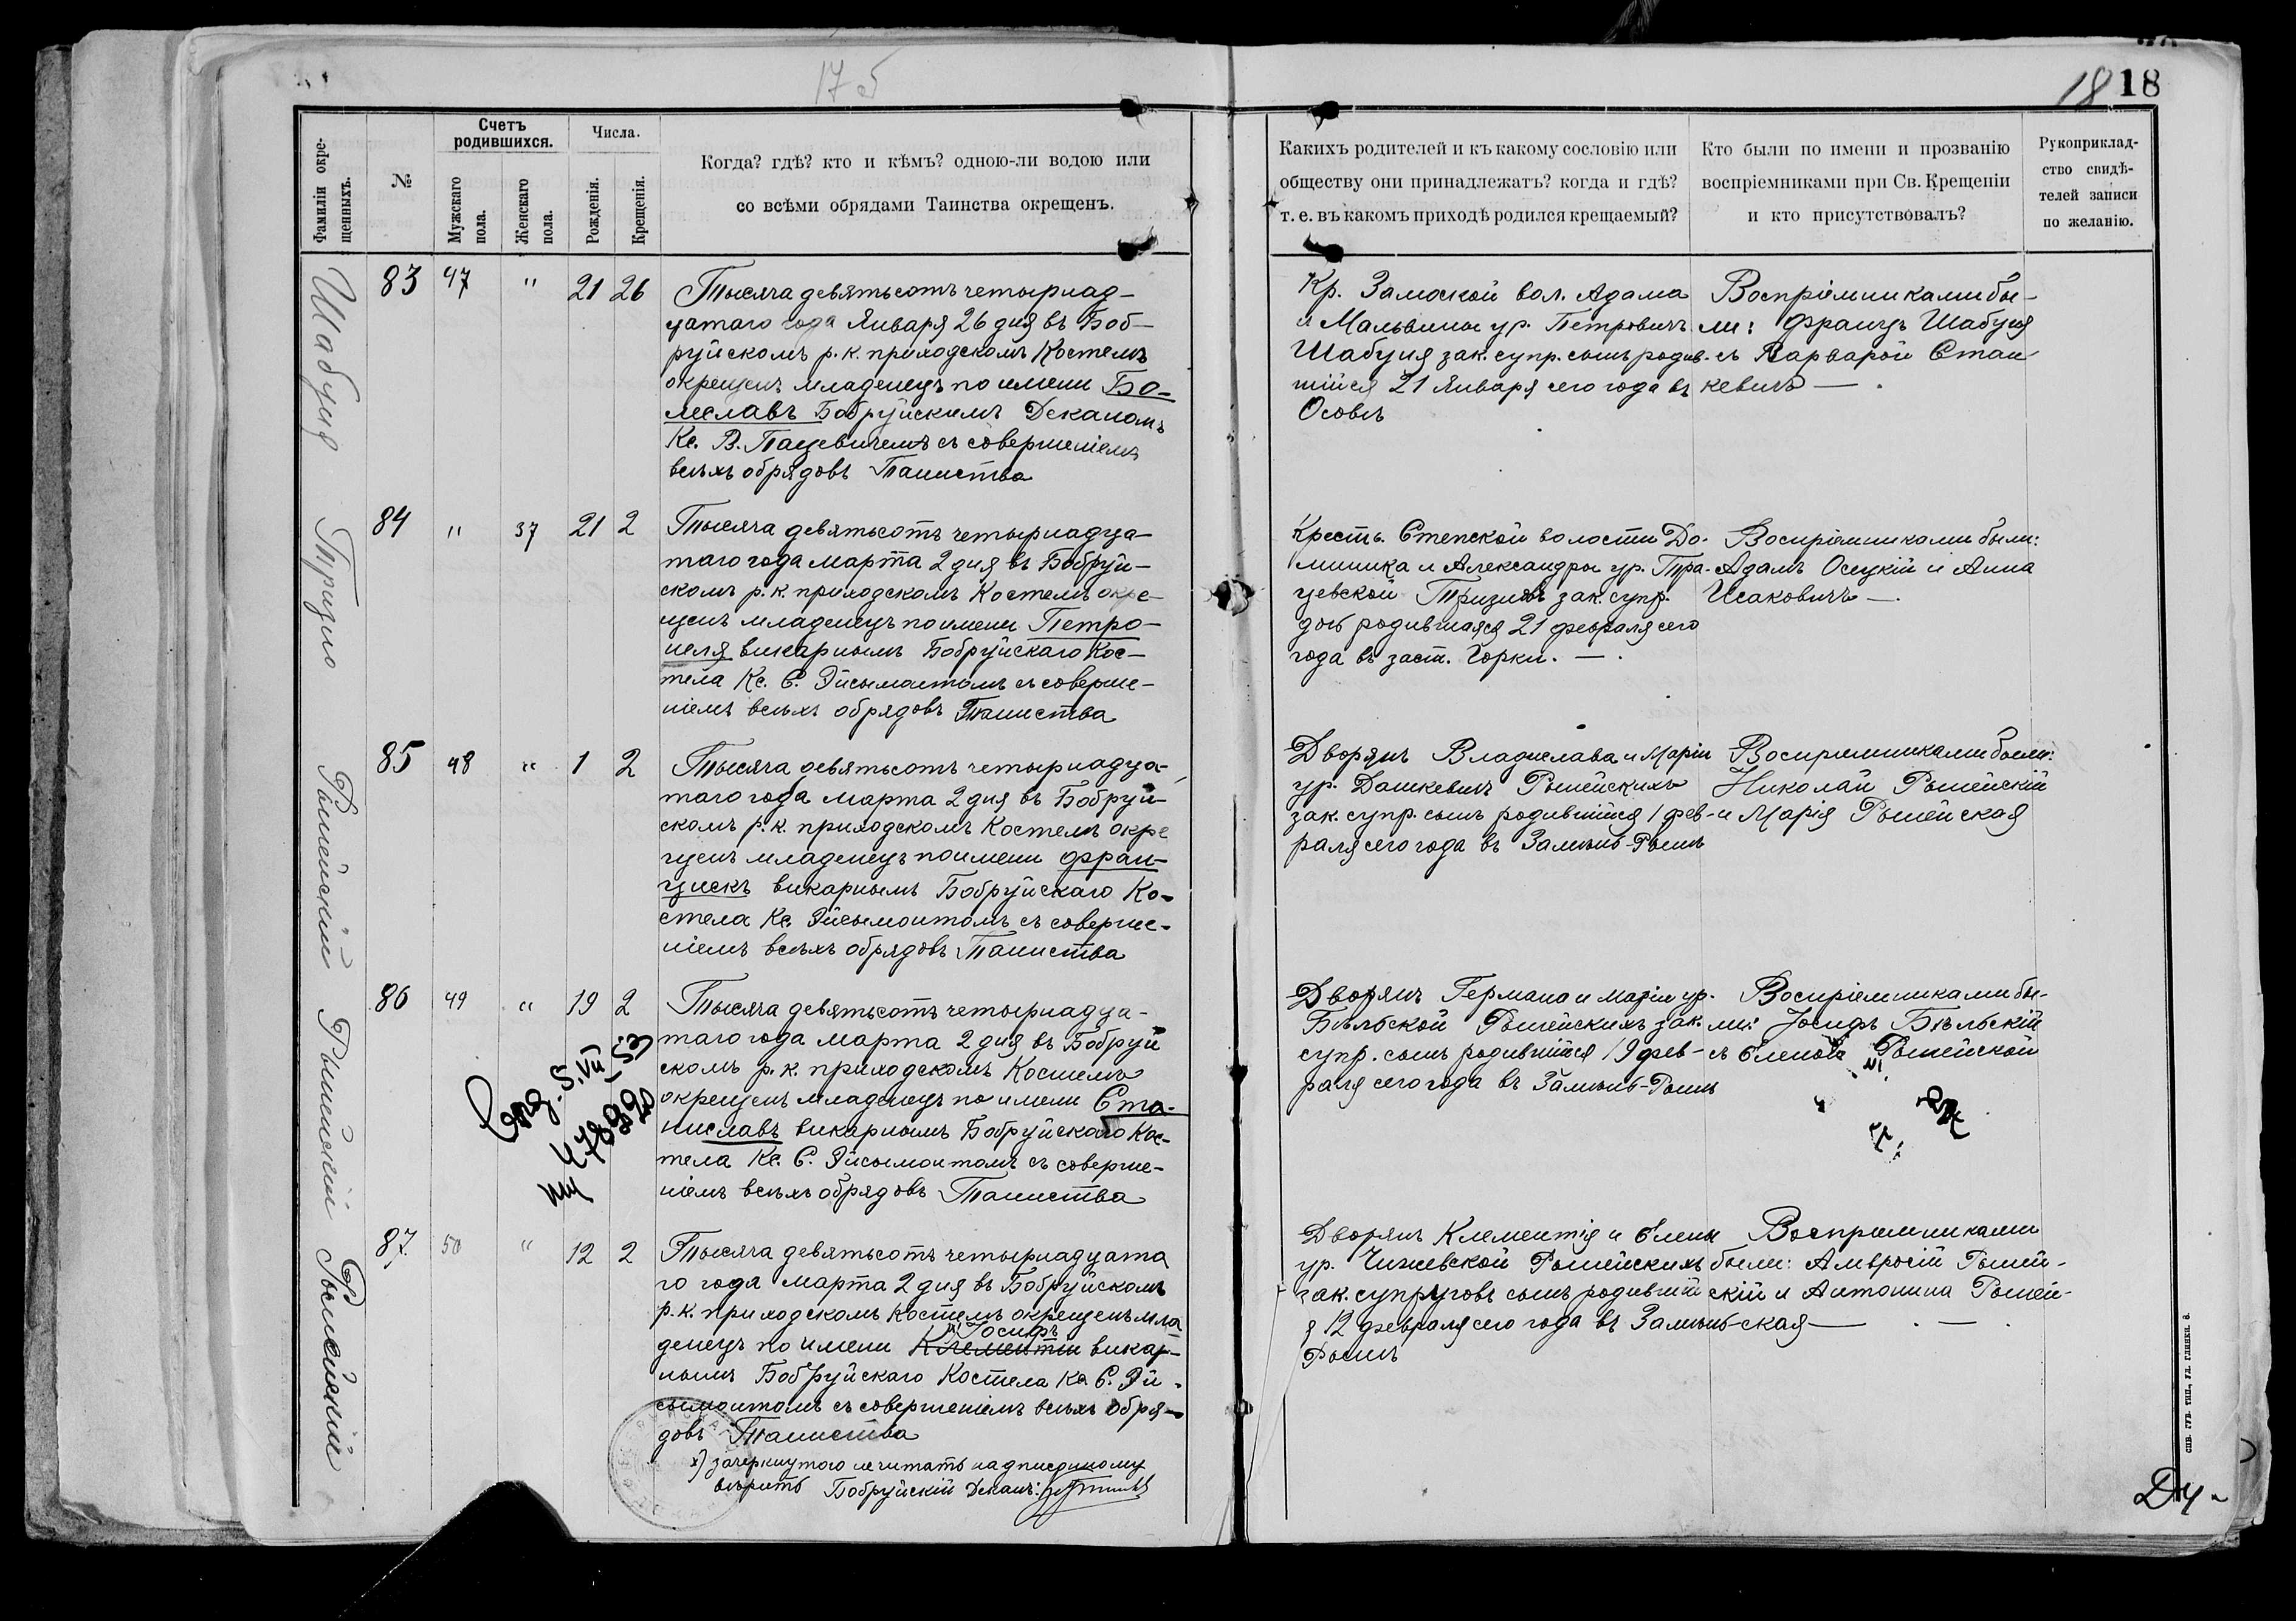 17 об
18 18
Фамиліи окре-
щенныхъ.
№
Счетъ
родившихся.
Мужскаго
пола.
Женскаго
пола.
Числа.
Рожденія.
Крещенія.
Когда? гдѣ? кто и кѣмъ? одною-ли водою или
со всѣми обрядами Таинства окрещенъ.
Какихъ родителей и къ какому сословію или
обществу они принадлежатъ? когда и гдѣ?
т. е. въ какомъ приходѣ родился крещаемый?
Кто были по имени и прозванію
воспріемниками при Св. Крещеніи
и кто присутствовалъ?
Рукоприклад-
ство свидѣ-
телей записи
по желанію.
Шабуня
83 47 " 21 26
Тысяча девятьсотъ четырнад-
цатаго года Января 26 дня въ Боб-
руйскомъ р. к. приходскомъ Костелѣ
окрещенъ младенецъ по имени Бо-
леславъ Бобруйскимъ Деканомъ
Кс. В. Пацевичемъ съ совершеніемъ
всѣхъ обрядовъ Таинства
Кр. Замоской вол. Адама
и Мальвины ур. Петровичъ
Шабуня зак. супр. сынъ родив-
шійся 21 Января сего года въ
Осовѣ
Воспріемниками бы-
ли: Францъ Шабуня
съ Варварой Стан-
кевичъ — .
Тризно
84 " 37 21 2
Тысяча девятьсотъ четырнадца-
таго года марта 2 дня въ Бобруй-
скомъ р. к. приходскомъ Костелѣ окре-
щенъ младенецъ по имени Петро-
неля викарнымъ Бобруйскаго Кос-
тела Кс. С. Эйсымонтомъ съ соверше-
ніемъ всѣхъ обрядовъ Таинства
Кресть. Степской волости До-
миника и Александры ур.
Тризнъ зак. супр.
дочь родившаяся 21 февраля сего
года въ заст. Горки. — .
Воспріемниками были:
Адамъ Осецкій и Анна
Исаковичъ — .
Рынейскій
85 48 " 1 2
Тысяча девятьсотъ четырнадца-
таго года марта 2 дня въ Бобруй-
скомъ р. к. приходскомъ Костелѣ окре
щенъ младенецъ по имени Фран-
цискъ викарнымъ Бобруйскаго Ко-
стела Кс. Эйсымонтомъ съ соверше-
ніемъ всѣхъ обрядовъ Таинства
Дворянъ Владислава и Маріи
ур. Дашкевичъ Рынейскихъ
зак. супр. сынъ родившійся 1 фев-
раля сего года въ
Воспріемниками были:
Николай Рынейскій
и Марія Рынейская
Рынейскій
86 49 " 19 2
Тысяча девятьсотъ четырнадца-
таго года марта 2 дня въ Бобруй
скомъ р. к. приходскомъ Костелѣ
окрещенъ младенецъ по имени Ста-
ниславъ викарнымъ Бобруйскаго Кос-
тела Кс. С. Эйсымонтомъ съ соверше-
ніемъ всѣхъ обрядовъ Таинства
Дворянъ Германа и Маріи ур.
Бѣльской Рынейскихъ зак.
супр. сынъ родившійся 19 фев-
раля сего года въ
Воспріемниками бы-
ли: Іосифъ Бѣльскій
съ Еленой Рынейской
Рынейскій
87. 50 " 12 2
Тысяча девятьсотъ четырнадцата
го года марта 2 дня въ Бобруйскомъ
р. к. приходскомъ Костелѣ окрещенъ мла-
х) Іосифъ
денецъ по имени Клементій викар-
нымъ Бобруйскаго Костела Кс. С. Эй-
сымонтомъ съ совершеніемъ всѣхъ обря-
довъ Таинства
х) зачеркнутого не читать надписанному
вѣрить Бобруйскій Деканъ:
Дворянъ Клементія и Елены
ур. Чижевской Рынейскихъ
зак. супруговъ сынъ родившій
я 12 февраля сего года въ
Воспріемниками
были: Амвросій Рыней-
скій и Антонина Рыней-
ская — . — .
СПБ. ГУБ. ТИП., УЛ. ГЛИНКИ. 6.